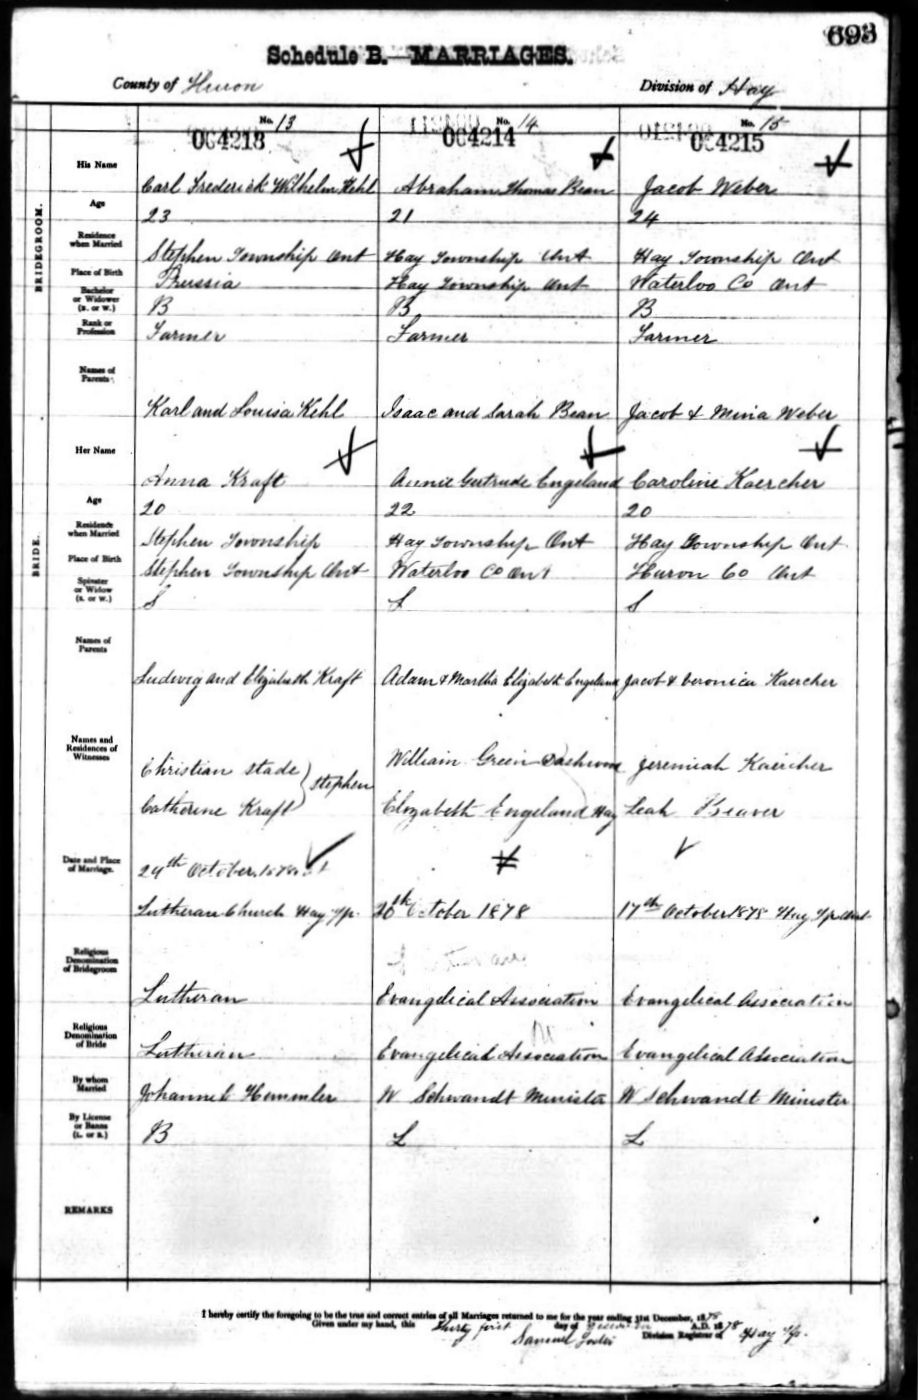 693
Schedule B.—MARRIAGES.
County of Huron Division of Hay
No. 13 No. 14 No. 15
004213 004214 004215
His Name Carl Frederick Wilhelm Kehl Abraham Thomas Bean Jacob Weber
Age 23 21 24
BRIDEGROOM.
Residence when Married Stephen Township Ont Hay Township Ont Hay Township Ont
Place of Birth Prussia Hay Township Ont Waterloo Co Ont
Bachelor or Widower (B. or W.) B B B
Rank or Profession Farmer Farmer Farmer
Names of Parents Karl and Louisa Kehl Isaac and Sarah Bean Jacob & Mina Weber
Her Name Anna Kraft Annie Gertrude Engeland Caroline Kaercher
Age 20 22 20
BRIDE.
Residence when Married Stephen Township Hay Township Ont Hay Township Ont
Place of Birth Stephen Township Ont Waterloo Co Ont Huron Co Ont
Spinster or Widow (S. or W.) S S S
Names of Parents Ludwig and Elizabeth Kraft Adam & Martha Elizabeth Engeland Jacob & Veronica Kaercher
Names and Residences of Witnesses Christian Stade William Green Dashwood Jeremiah Kaercher
Stephen
Catherine Kraft Elizabeth Engeland Hay Leah Beaver
Date and Place of Marriage. 24th October, 1878
Lutheran Church Hay Tp. October 1878 17th October 1878 Hay Tp
Religious Denomination of Bridegroom Lutheran Evangelical Association Evangelical Association
Religious Denomination of Bride Lutheran Evangelical Association Evangelical Association
By whom Married Hemmler W Schwandt Minister W Schwandt Minister
By License or Banns (L. or B.) B L L
REMARKS
I hereby certify the foregoing to be the true and correct entries of all Marriages returned to me for the year ending 31st December, 1878
Given under my hand, this Thirty first day of December A.D. 1878
Samuel Foster Division Registrar of Hay Tp.